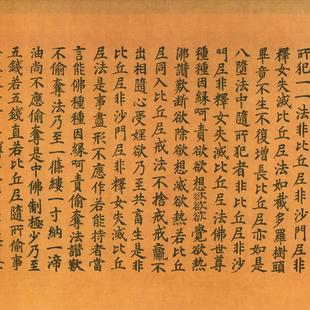 所犯一一法非比丘尼非沙
釋女失滅比丘尼法如截多羅樹頭
畢竟不生不復增長比丘尼亦如是
八墮法中隨所犯者非比丘尼非沙
門尼非釋女失滅比丘尼法佛世尊
種種因緣呵責欲想欲欲覺欲熱
佛讚歎斷欲除欲想滅欲熱若比丘
尼同入比丘尼戒法不捨戒戒羸不
出相隨心受婬欲乃至共畜生是非
比丘尼非沙門尼非釋女失滅比丘
尼法是事盡形不應作若能持者當
言能佛種種因緣呵責偷奪法讚歎
不偷奪法乃至一條縷一寸納一渧
油尚不應偷奪是中佛制極少乃至
五錢若五錢直若比丘尼隨所偷事